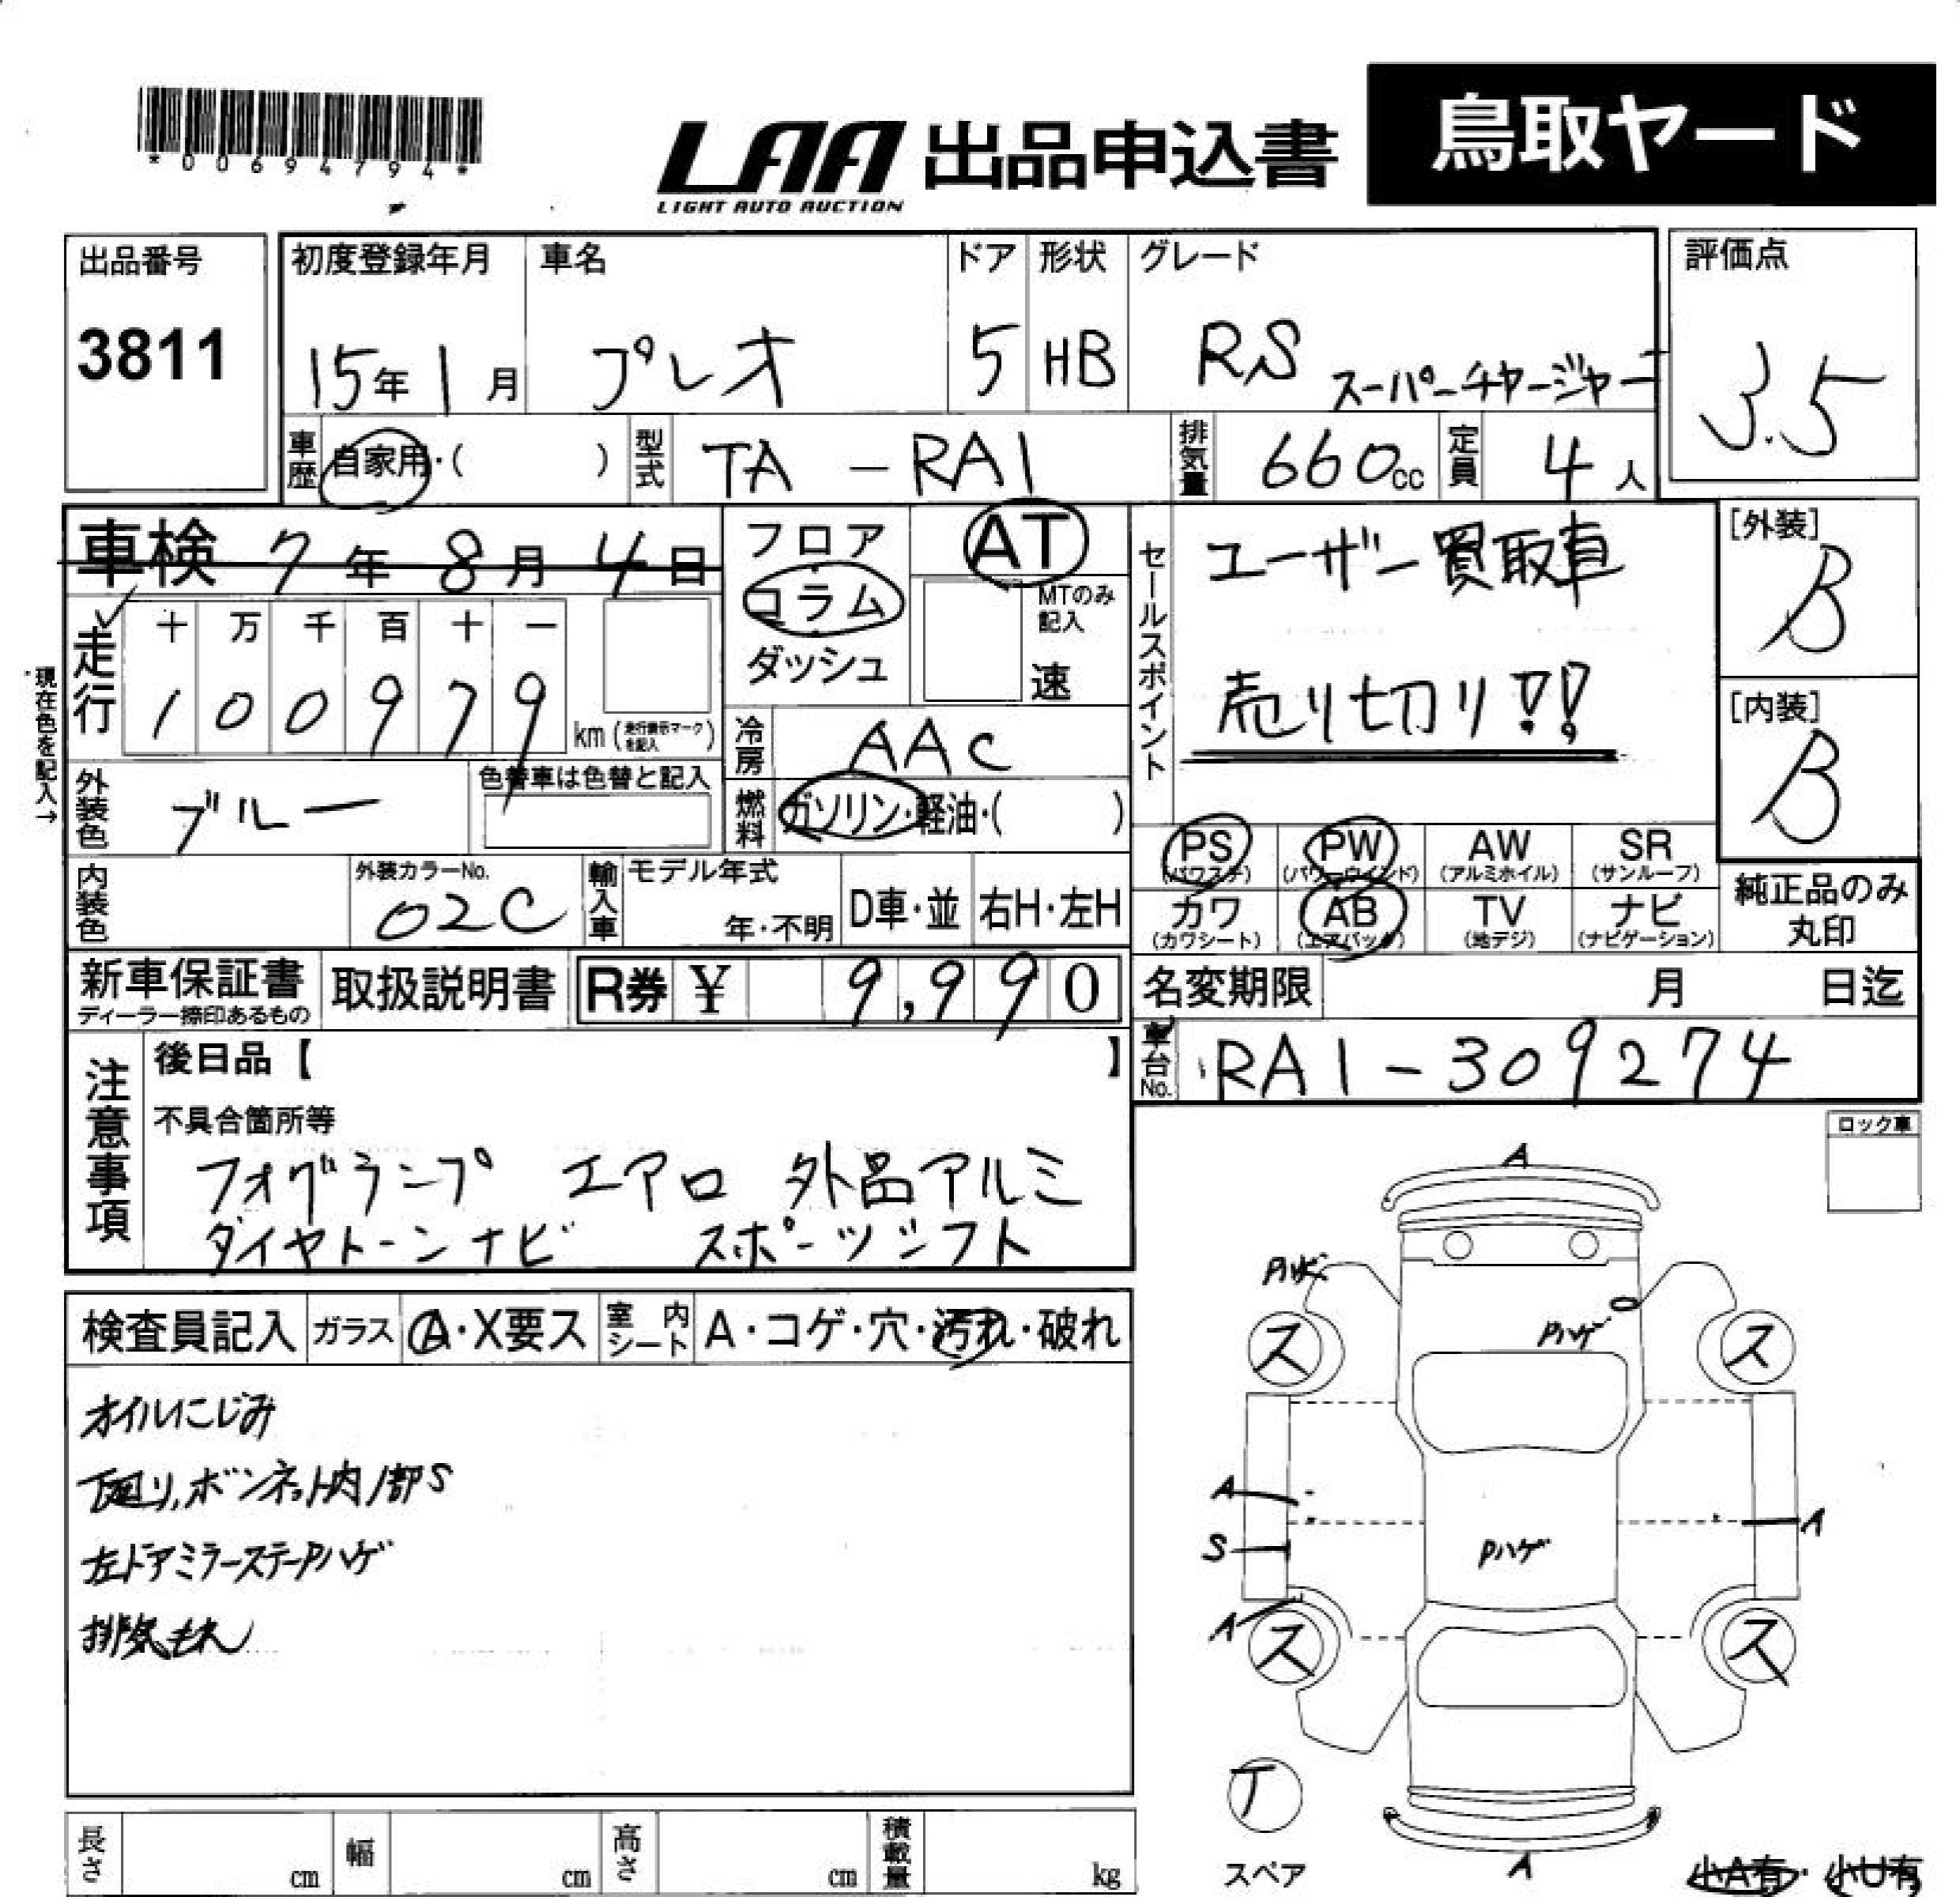 *00694794*
LAA 出品申込書 鳥取ヤード
LIGHT AUTO AUCTION
出品番号 初度登録年月 車名 ドア 形状 グレード 評価点
3811 15年 1月 プレオ 5 HB RS スーパーチャージャー 3.5
車歴 自家用・( ) 型式 TA-RA1 排気量 660cc 定員 4人
車検 7年 8月 4日 フロア AT セールスポイント ユーザー買取車 [外装]
コラム MTのみ記入 B
走行 十 万 千 百 十 一 ダッシュ 速 売り切り!! [内装]
1 0 0 9 7 9 km (走行表示マークを記入) 冷房 AAC B
現在色を記入→
外装色 ブルー 色替車は色替と記入 燃料 ガソリン・軽油・( )
PS PW AW SR
(パワステ) (パワーウインド) (アルミホイル) (サンルーフ)
内装色 外装カラーNo. 02C 輸入車 モデル年式 年・不明 D車・並 右H・左H
カワ AB TV ナビ 純正品のみ丸印
(カワシート) (エアバック) (地デジ) (ナビゲーション)
新車保証書 取扱説明書 R券 ¥ 9,990 名変期限 月 日迄
ディーラー捺印あるもの
車台No. RA1-309274
注意事項 後日品【 】
不具合箇所等
フォグランプ エアロ 外品アルミ
ダイヤトーンナビ スポーツシフト
ロック車
検査員記入 ガラス A・X要ス 室内シート A・コゲ・穴・汚れ・破れ
オイルにじみ
下廻り,ボンネット内部S
左ドアミラーステーPハゲ
排気もれ
A
Pハゲ
ス ス
A
S Pハゲ A
A
ス ス
T
スペア A 小A有・小U有
長さ cm 幅 cm 高さ cm 積載量 kg